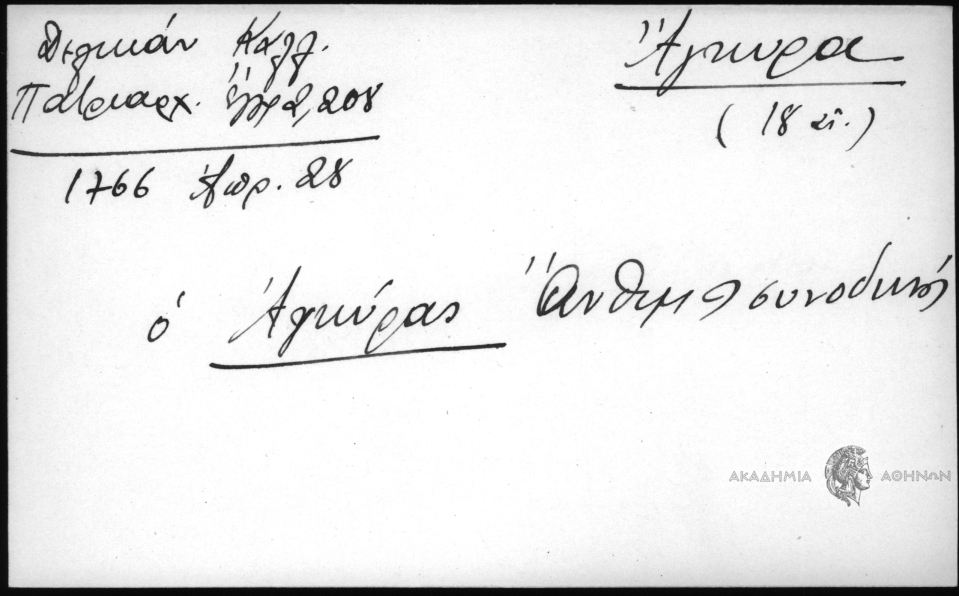 Δελικάν Καλλ.
Πατριαρχ. Ἔγγρ 2, 208
1766 Ἀπρ. 28
Ἄγκυρα
(18 αἰ.)
ὁ Ἀγκύρας Ἄνθιμος συνοδικός
ΑΚΑΔΗΜΙΑ ΑΘΗΝΩΝ